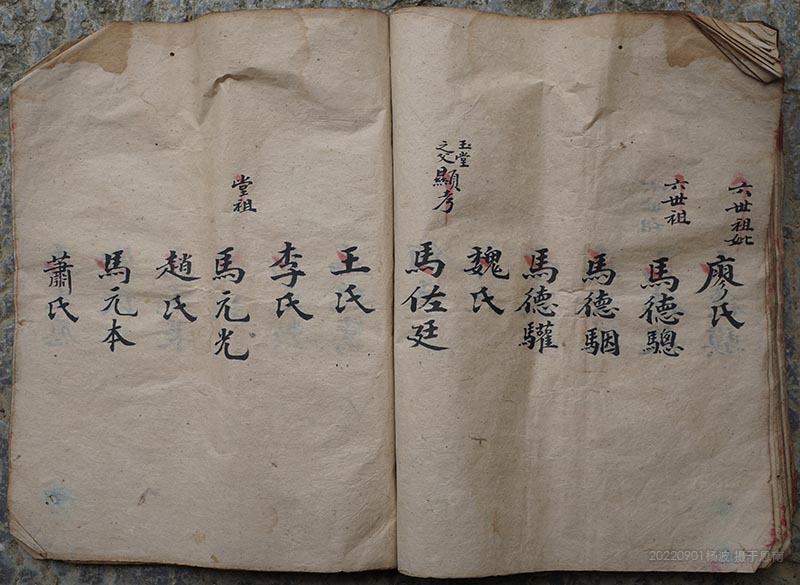 六世祖妣
廖氏
六世祖
馬德驄
馬德駰
馬德驩
魏氏
玉堂
之父
顯考
馬佐廷
王氏
李氏
堂祖
馬元光
趙氏
馬元本
蕭氏
20220901杨波 摄于思南